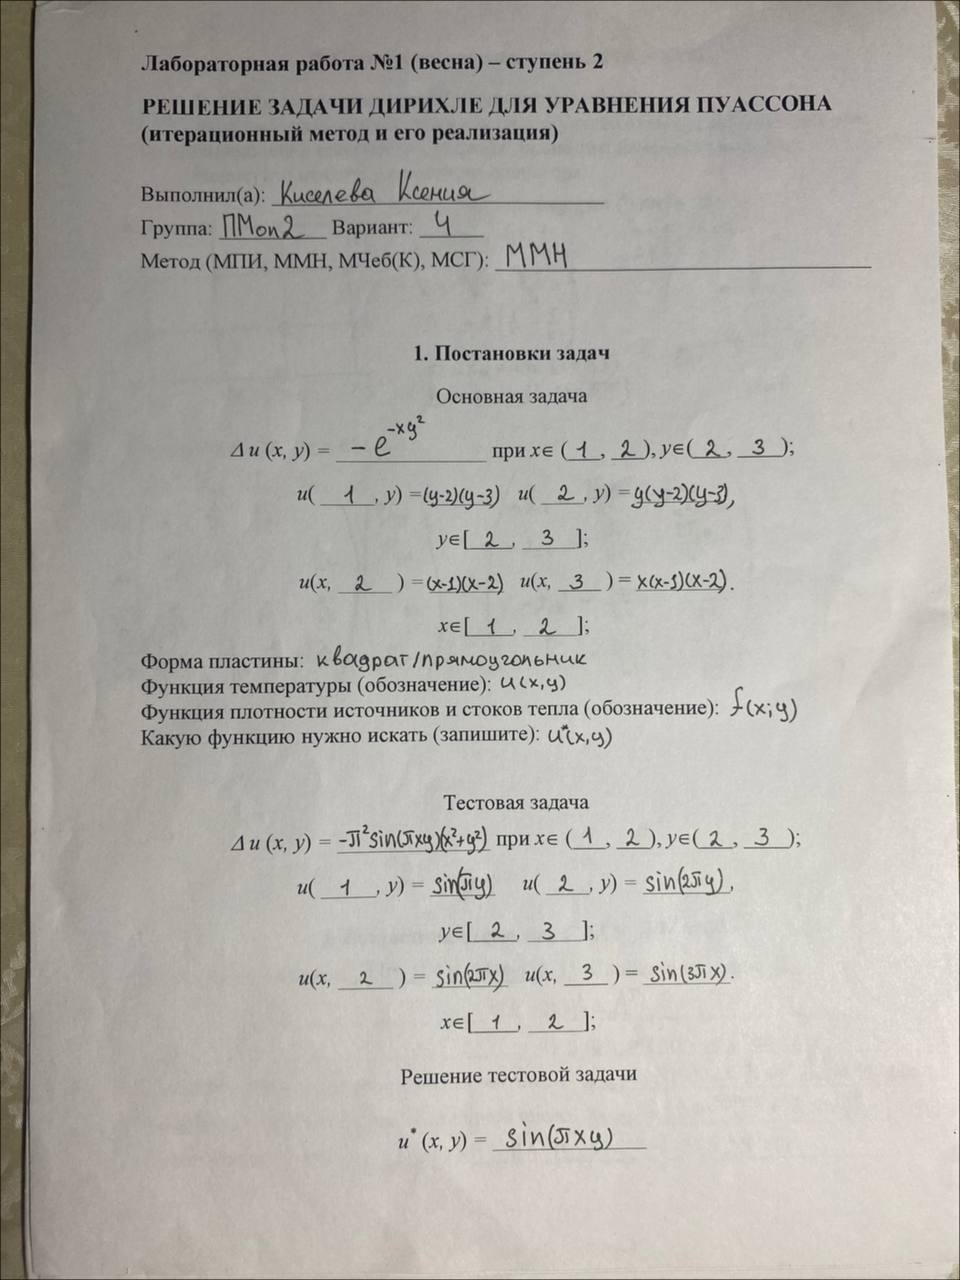 Лабораторная работа №1 (весна) – ступень 2
РЕШЕНИЕ ЗАДАЧИ ДИРИХЛЕ ДЛЯ УРАВНЕНИЯ ПУАССОНА
(итерационный метод и его реализация)
Выполнил(а): Киселева Ксения
Группа: ПМоп2 Вариант: 4
Метод (МПИ, ММН, МЧеб(К), МСГ): ММН
1. Постановки задач
Основная задача
Δ u (x, y) = -e^{-xy²} при x∈ (1, 2), y∈(2, 3);
u(1, y) = (y-2)(y-3) u(2, y) = y(y-2)(y-3),
y∈[2, 3];
u(x, 2) = (x-1)(x-2) u(x, 3) = x(x-1)(x-2).
x∈[1, 2];
Форма пластины: квадрат/прямоугольник
Функция температуры (обозначение): u(x,y)
Функция плотности источников и стоков тепла (обозначение): f(x;y)
Какую функцию нужно искать (запишите): u*(x,y)
Тестовая задача
Δ u (x, y) = -π²sin(πxy)(x²+y²) при x∈ (1, 2), y∈(2, 3);
u(1, y) = sin(πy) u(2, y) = sin(2πy),
y∈[2, 3];
u(x, 2) = sin(2πx) u(x, 3) = sin(3πx).
x∈[1, 2];
Решение тестовой задачи
u* (x, y) = sin(πxy)